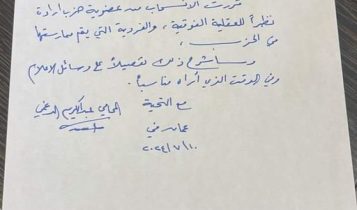 قررت الانسحاب من عضوية حزب إرادة
نظراً للعقلية الفوقية، والفردية التي يتم ممارستها
في الحزب،
وسأشرح ذلك تفصيلاً على وسائل الإعلام
وفي الوقت الذي أراه مناسباً.
مع التحية
المحامي عبدالكريم الدغمي
عمان في
٢٠٢٤/٧/١٠